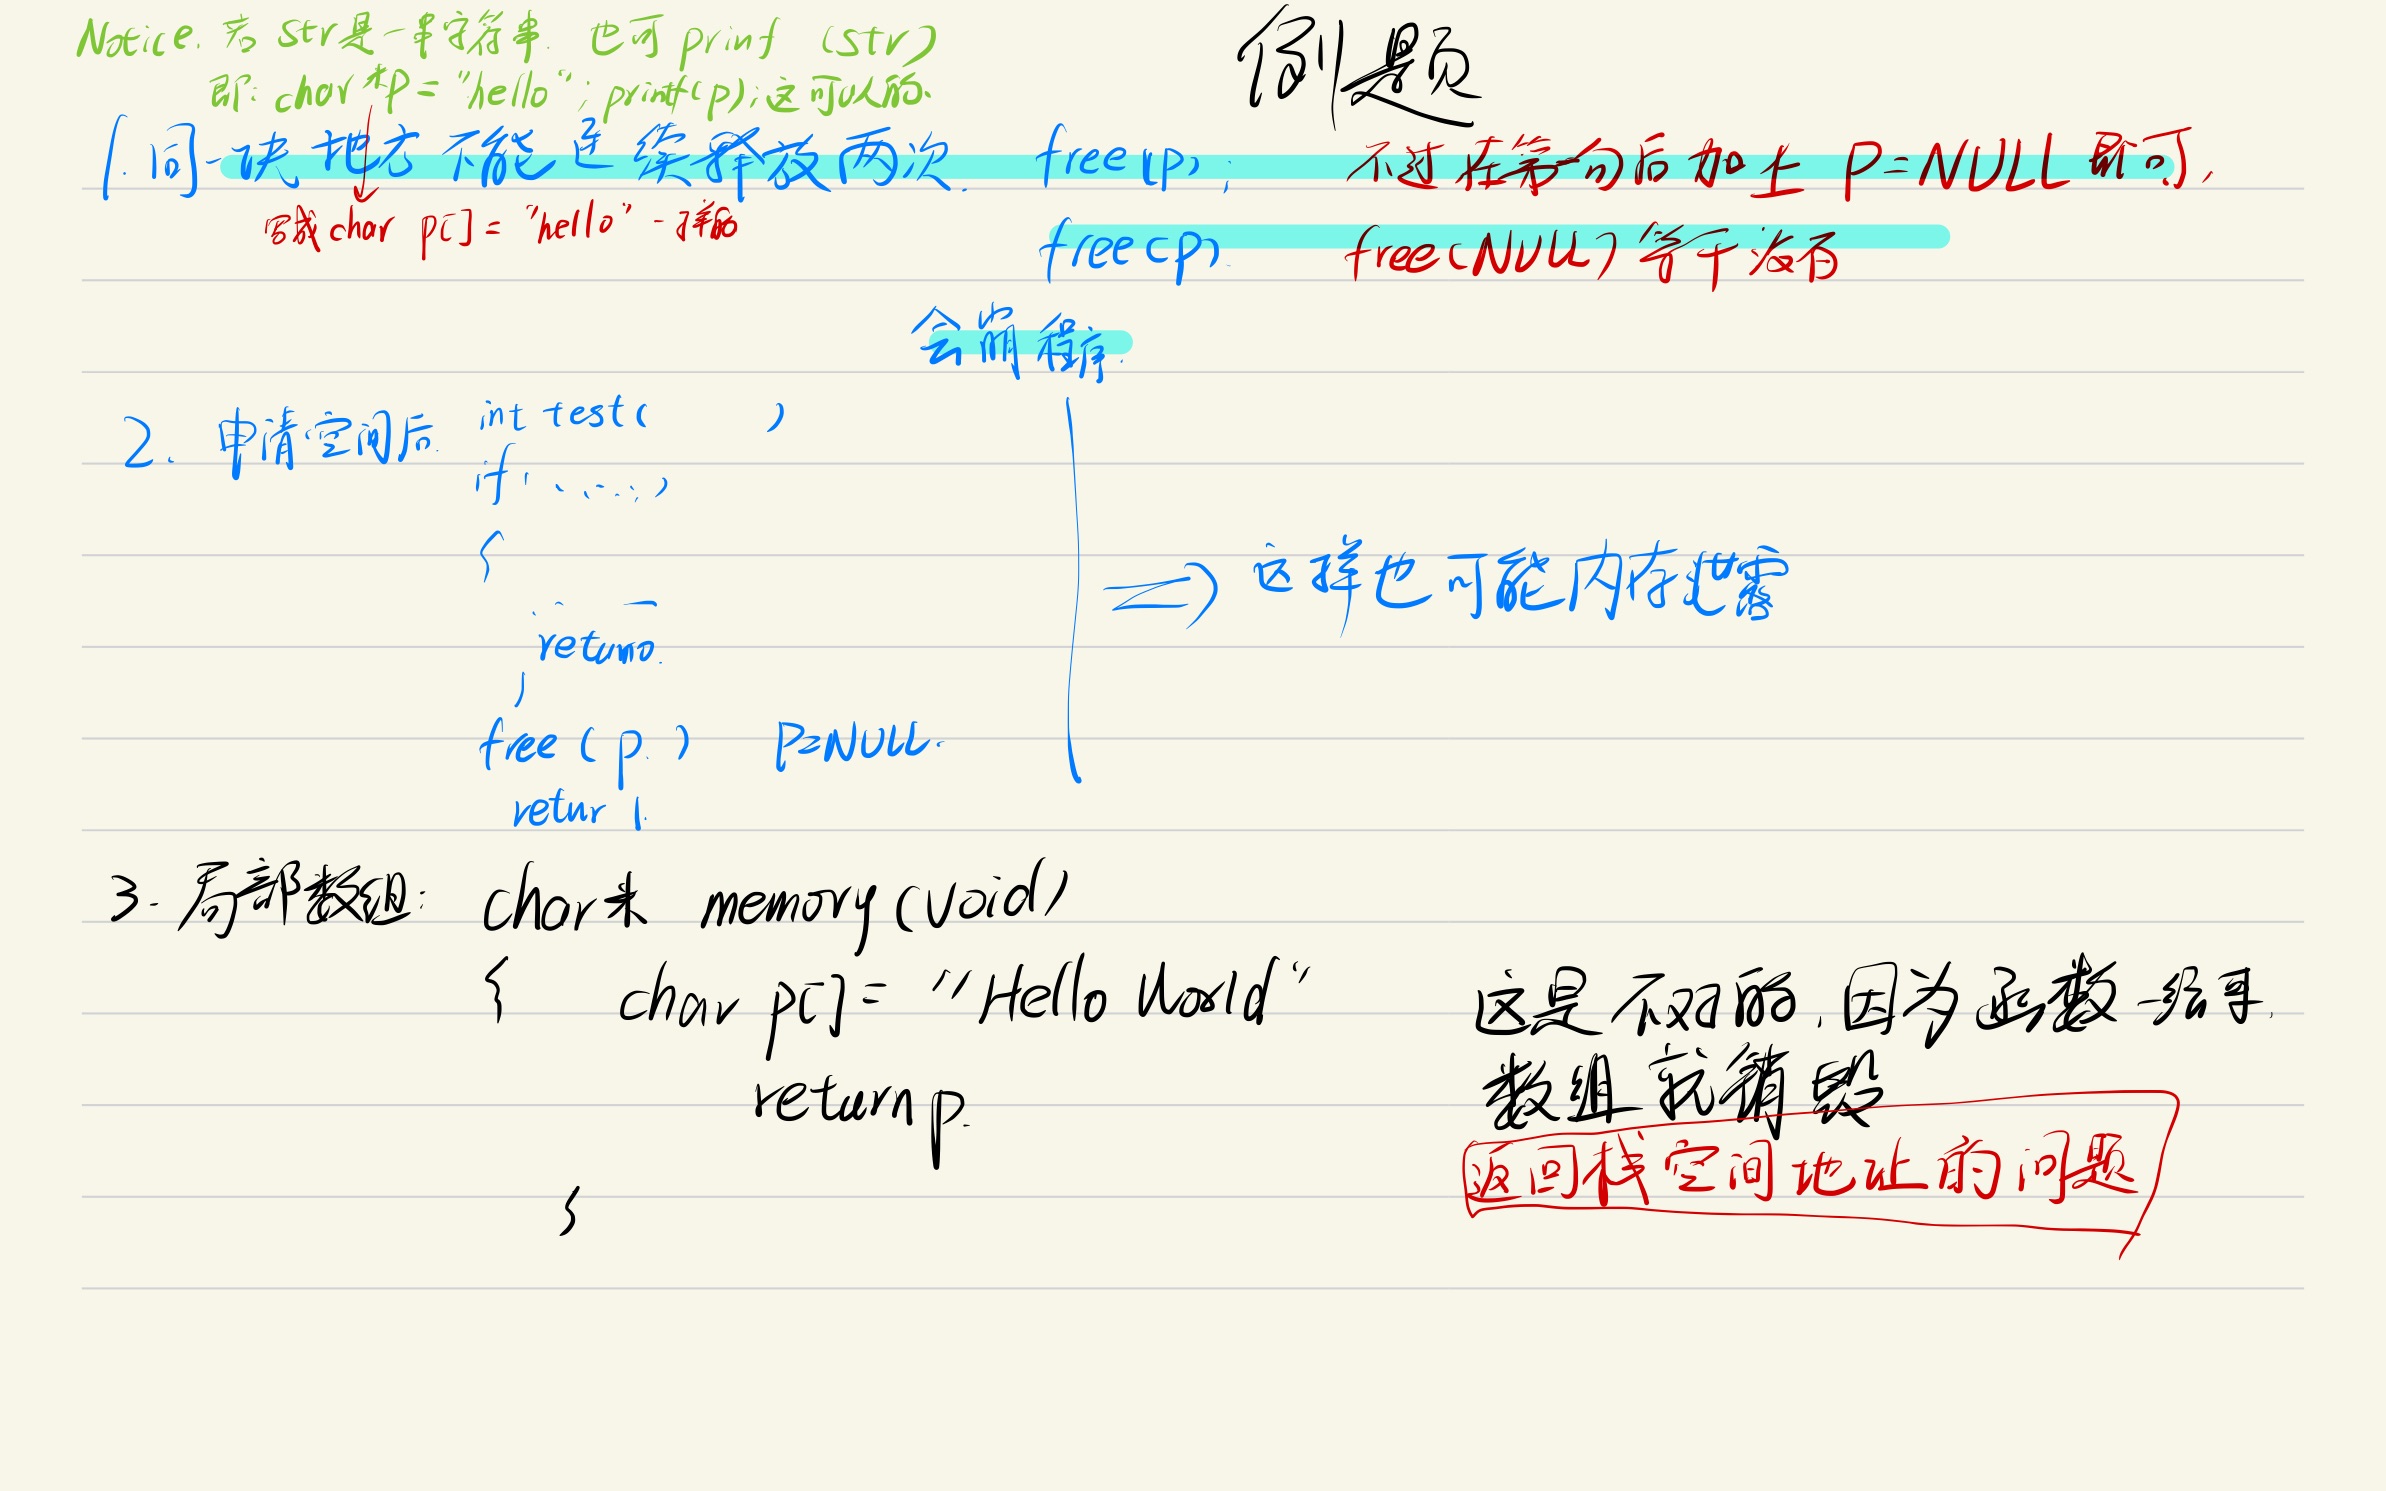 例题
Notice. 若 str是一串字符串. 也可 prinf (str)
即: char *p = "hello"; printf(p); 这可以的.
1. 同一块地方不能连续释放两次. free(p); 不过在第一句后加上 P=NULL即可,
写成char p[] = "hello" 一样的
free(p) free(NULL)等于没有
会崩程序.
2. 申请空间后. int test( )
if( ......)
{
return0.
}
free(p.) P=NULL.
retur 1.
这样也可能内存泄露
3. 局部数组: char* memory(void)
{ char p[] = "Hello World" 这是不对的,因为函数一结束,
数组就销毁
return p.
返回栈空间地址的问题
}